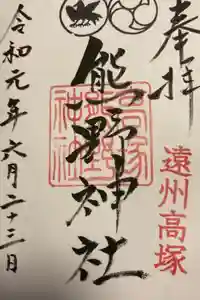 奉拝
遠州高塚
熊野神社
高塚
熊野
神社
令和元年六月二十三日